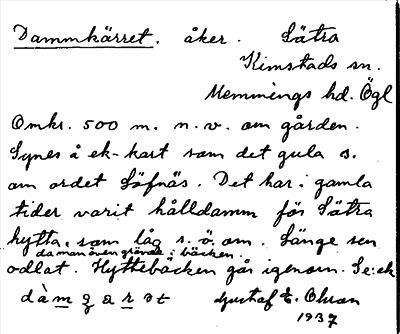 Dammkärret. åker. Sätra
Kimstads sn.
Memmings hd. Ögl
Omkr. 500 m. n.v. om gården.
Synes å ek-kart som det gula o.
om ordet Löfnäs. Det har i gamla
tider varit hålldamm för Sätra
hytta, som låg s.ö. om. Länge sen
da man även grävde i bäcken.
odlat. Hyttebäcken går igenom. Se: ek
Gustaf E. Olson
1937